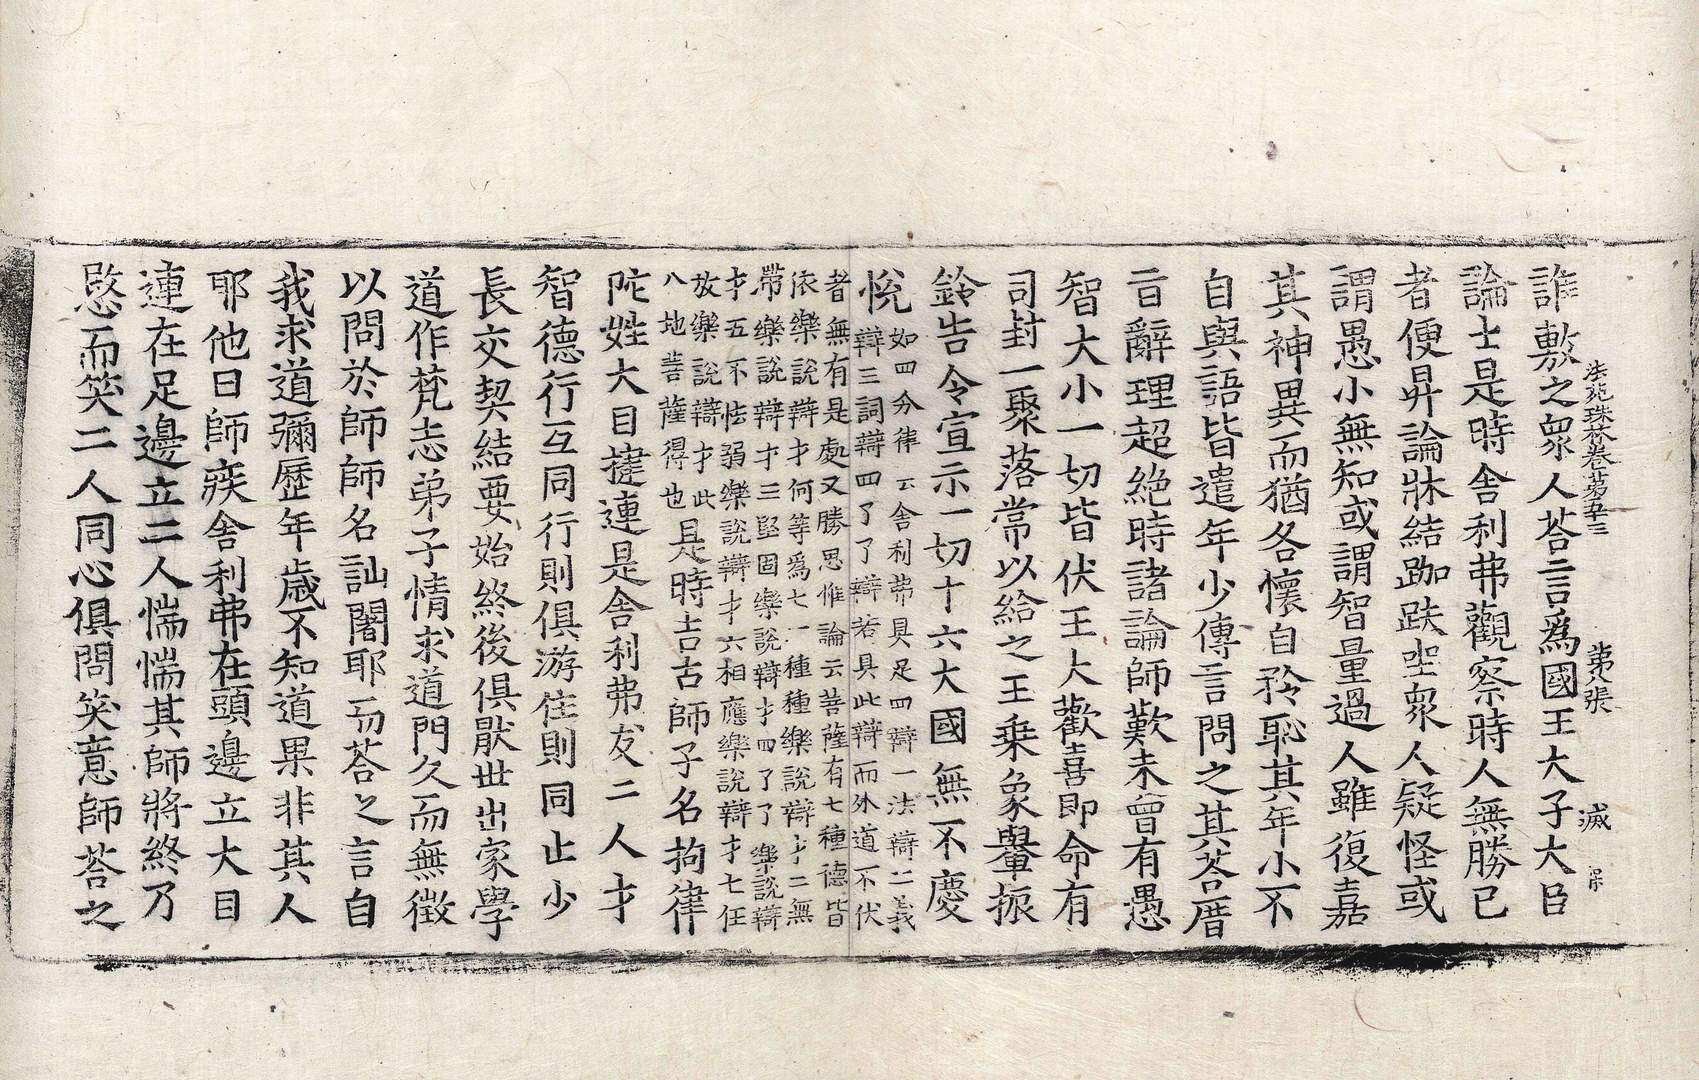 法苑珠林卷第五十三 第八張 滅
誰敷之衆人荅言爲國王大子大臣
論士是時舍利弗觀察時人無勝己
者便昇論牀結跏趺坐衆人疑怪或
謂愚小無知或謂智量過人雖復嘉
其神異而猶各懷自矜恥其年小不
自與語皆遣年少傳言問之其荅厝
盲辭理超絶時諸論師歎未曾有愚
智大小一切皆伏王大歡喜即命有
司封一聚落常以給之王乗象轝振
鈴告令宣示一切十六大國無不慶
恱
如四分律云舍利弗具足四辯一法辯二義
辯三詞辯四了了辯若具此辯而外道不伏
者無有是處又勝思惟論云菩薩有七種德皆
依樂說辯才何等爲七一種種樂說辯才二無
帶樂說辯才三堅固樂說辯才四了了樂說辯
才五不怯弱樂說辯才六相應樂說辯才七任
放樂說辯才此
八地菩薩得也
是時吉古師子名拘律
陀姓大目揵連是舍利弗友二人才
智德行互同行則俱游住則同止少
長交契結要始終後俱厭世出家學
道作梵志弟子情求道門久而無徵
以問於師師名訕闍耶而荅之言自
我求道彌歷年歲不知道果非其人
耶他日師疾舍利弗在頭邊立大目
連在足邊立二人惴惴其師將終乃
愍而笑二人同心俱問笑意師荅之